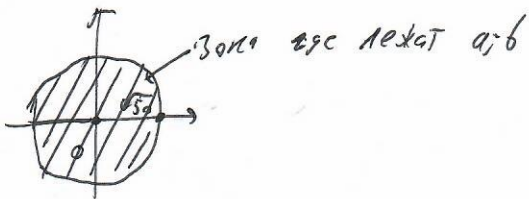 Зона где лежат a; b
√50